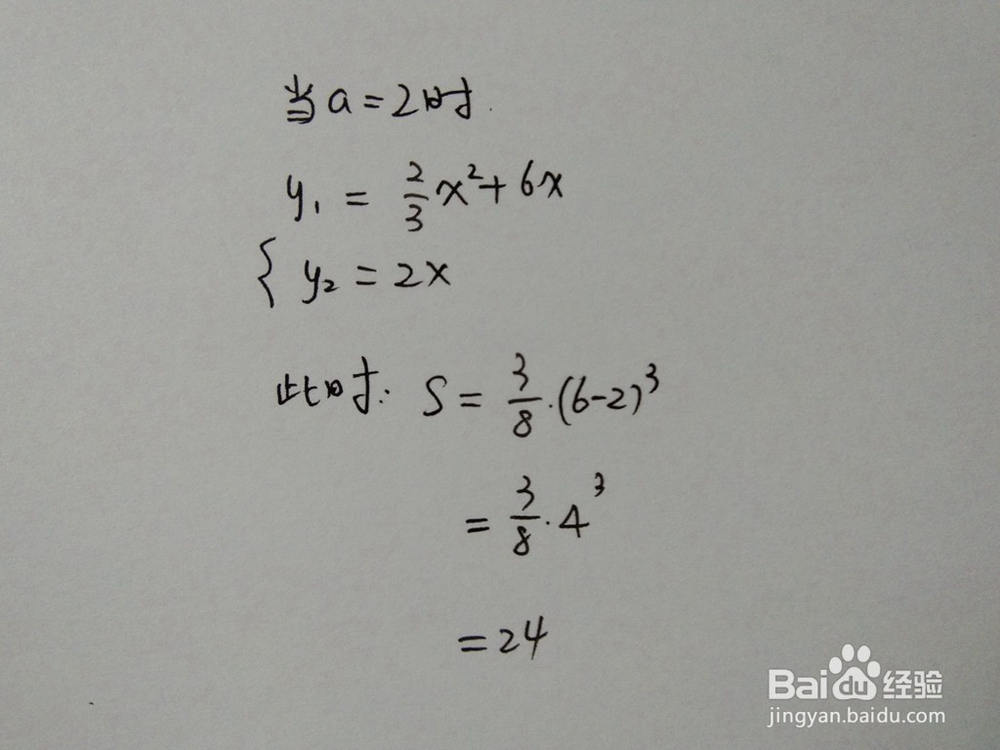 当a=2时.
y₁ = 2/3 x² + 6x
{ y₂ = 2x
此时: S = 3/8 · (6-2)³
= 3/8 · 4³
= 24
Baidu经验
jingyan.baidu.com